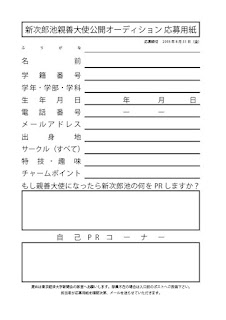 新次郎池親善大使公開オーディション 応募用紙
ふりがな
名前
学籍番号
学年・学部・学科
生年月日 年 月 日
電話番号 ー ー
メールアドレス
出身地
サークル（すべて）
特技・趣味
チャームポイント
もし親善大使になったら新次郎池の何をPRしますか？
自己PRコーナー